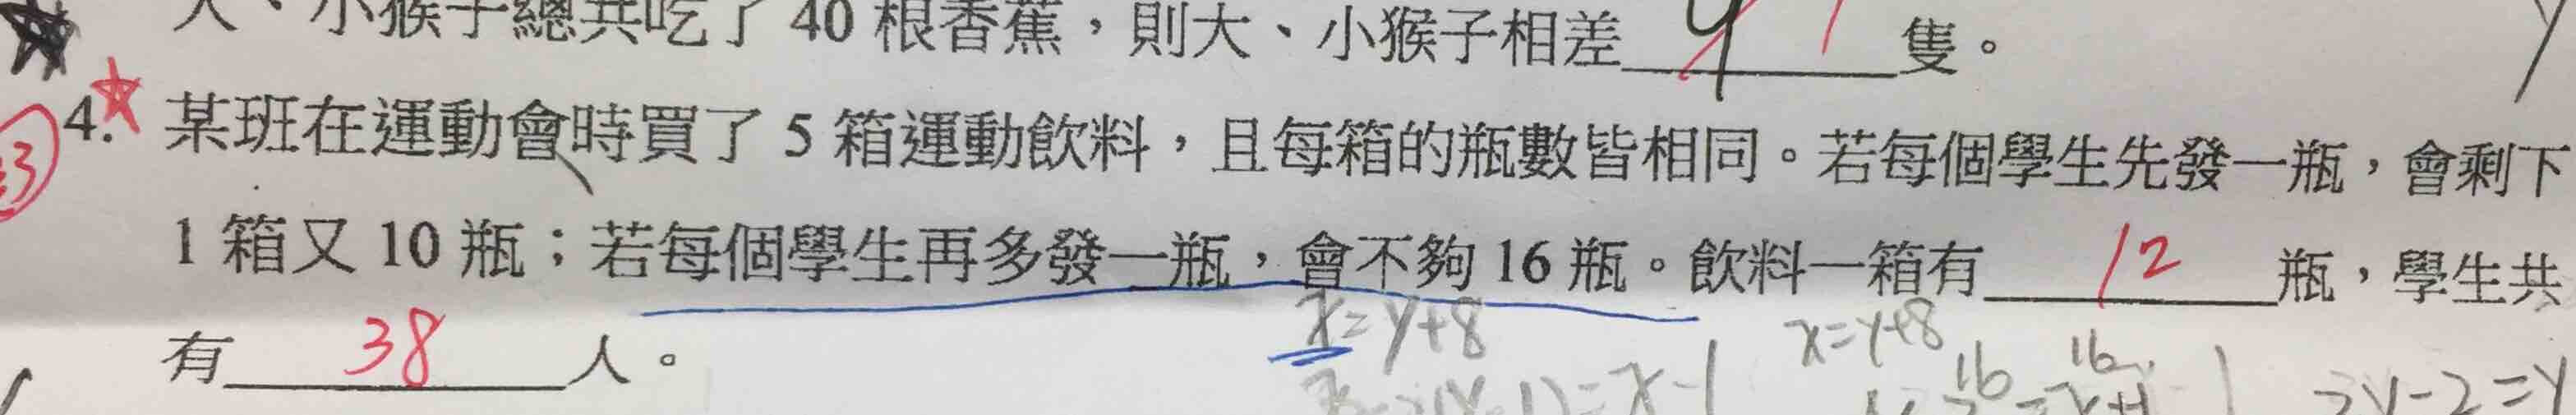 大、小猴子總共吃了 40 根香蕉，則大、小猴子相差 隻。
4. 某班在運動會時買了 5 箱運動飲料，且每箱的瓶數皆相同。若每個學生先發一瓶，會剩下
1 箱又 10 瓶；若每個學生再多發一瓶，會不夠 16 瓶。飲料一箱有 12 瓶，學生共
有 38 人。
x=y+8
x=y+8